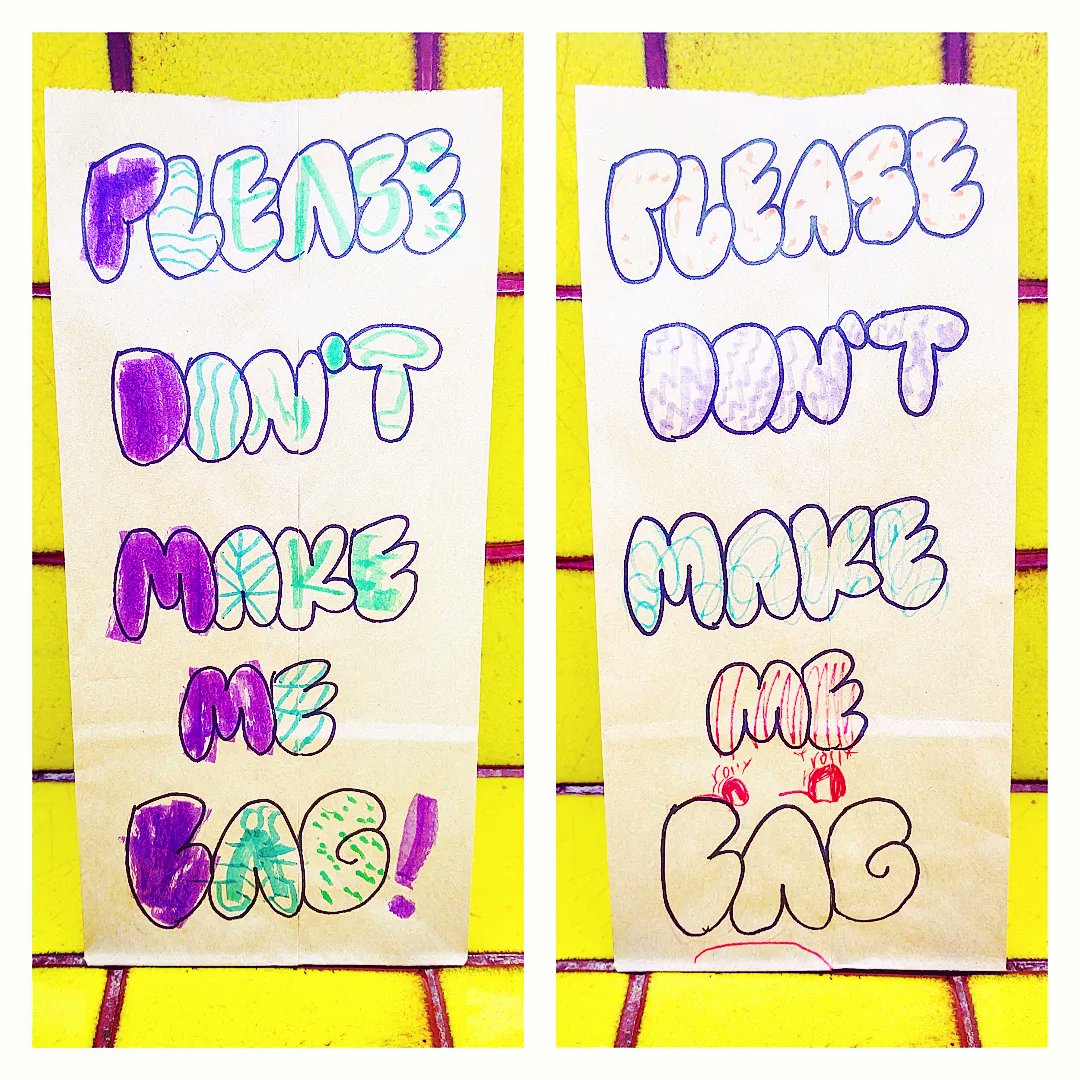 PLEASE
DON'T
MAKE
ME
BAG!
PLEASE
DON'T
MAKE
ME
BAG